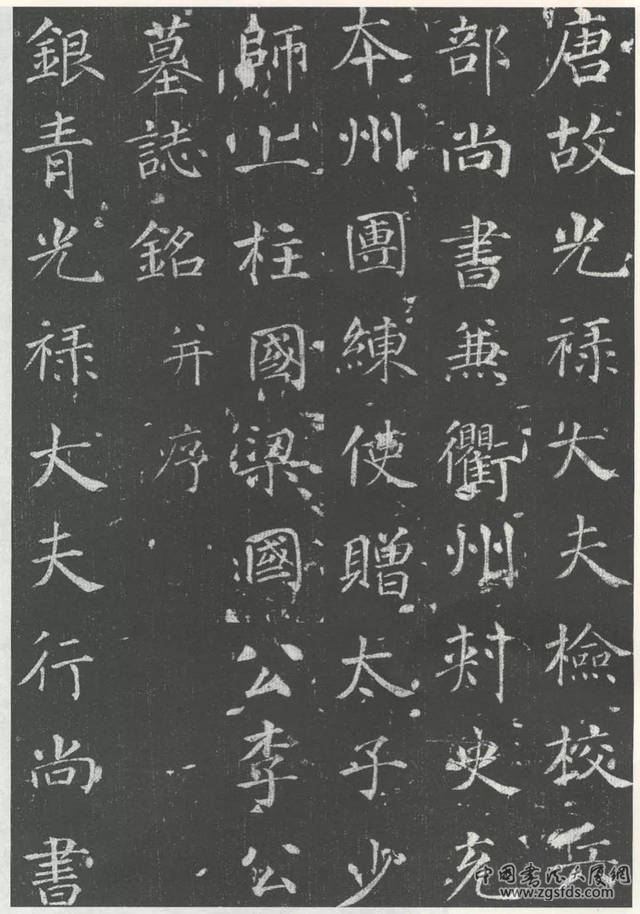 唐故光禄大夫檢校工
部尚書兼衢州刾史充
本州團練使贈太子少
師上柱國梁國公李公
墓誌銘并序
銀青光禄大夫行尚書
中国书法大厦网
www.zgsfds.com